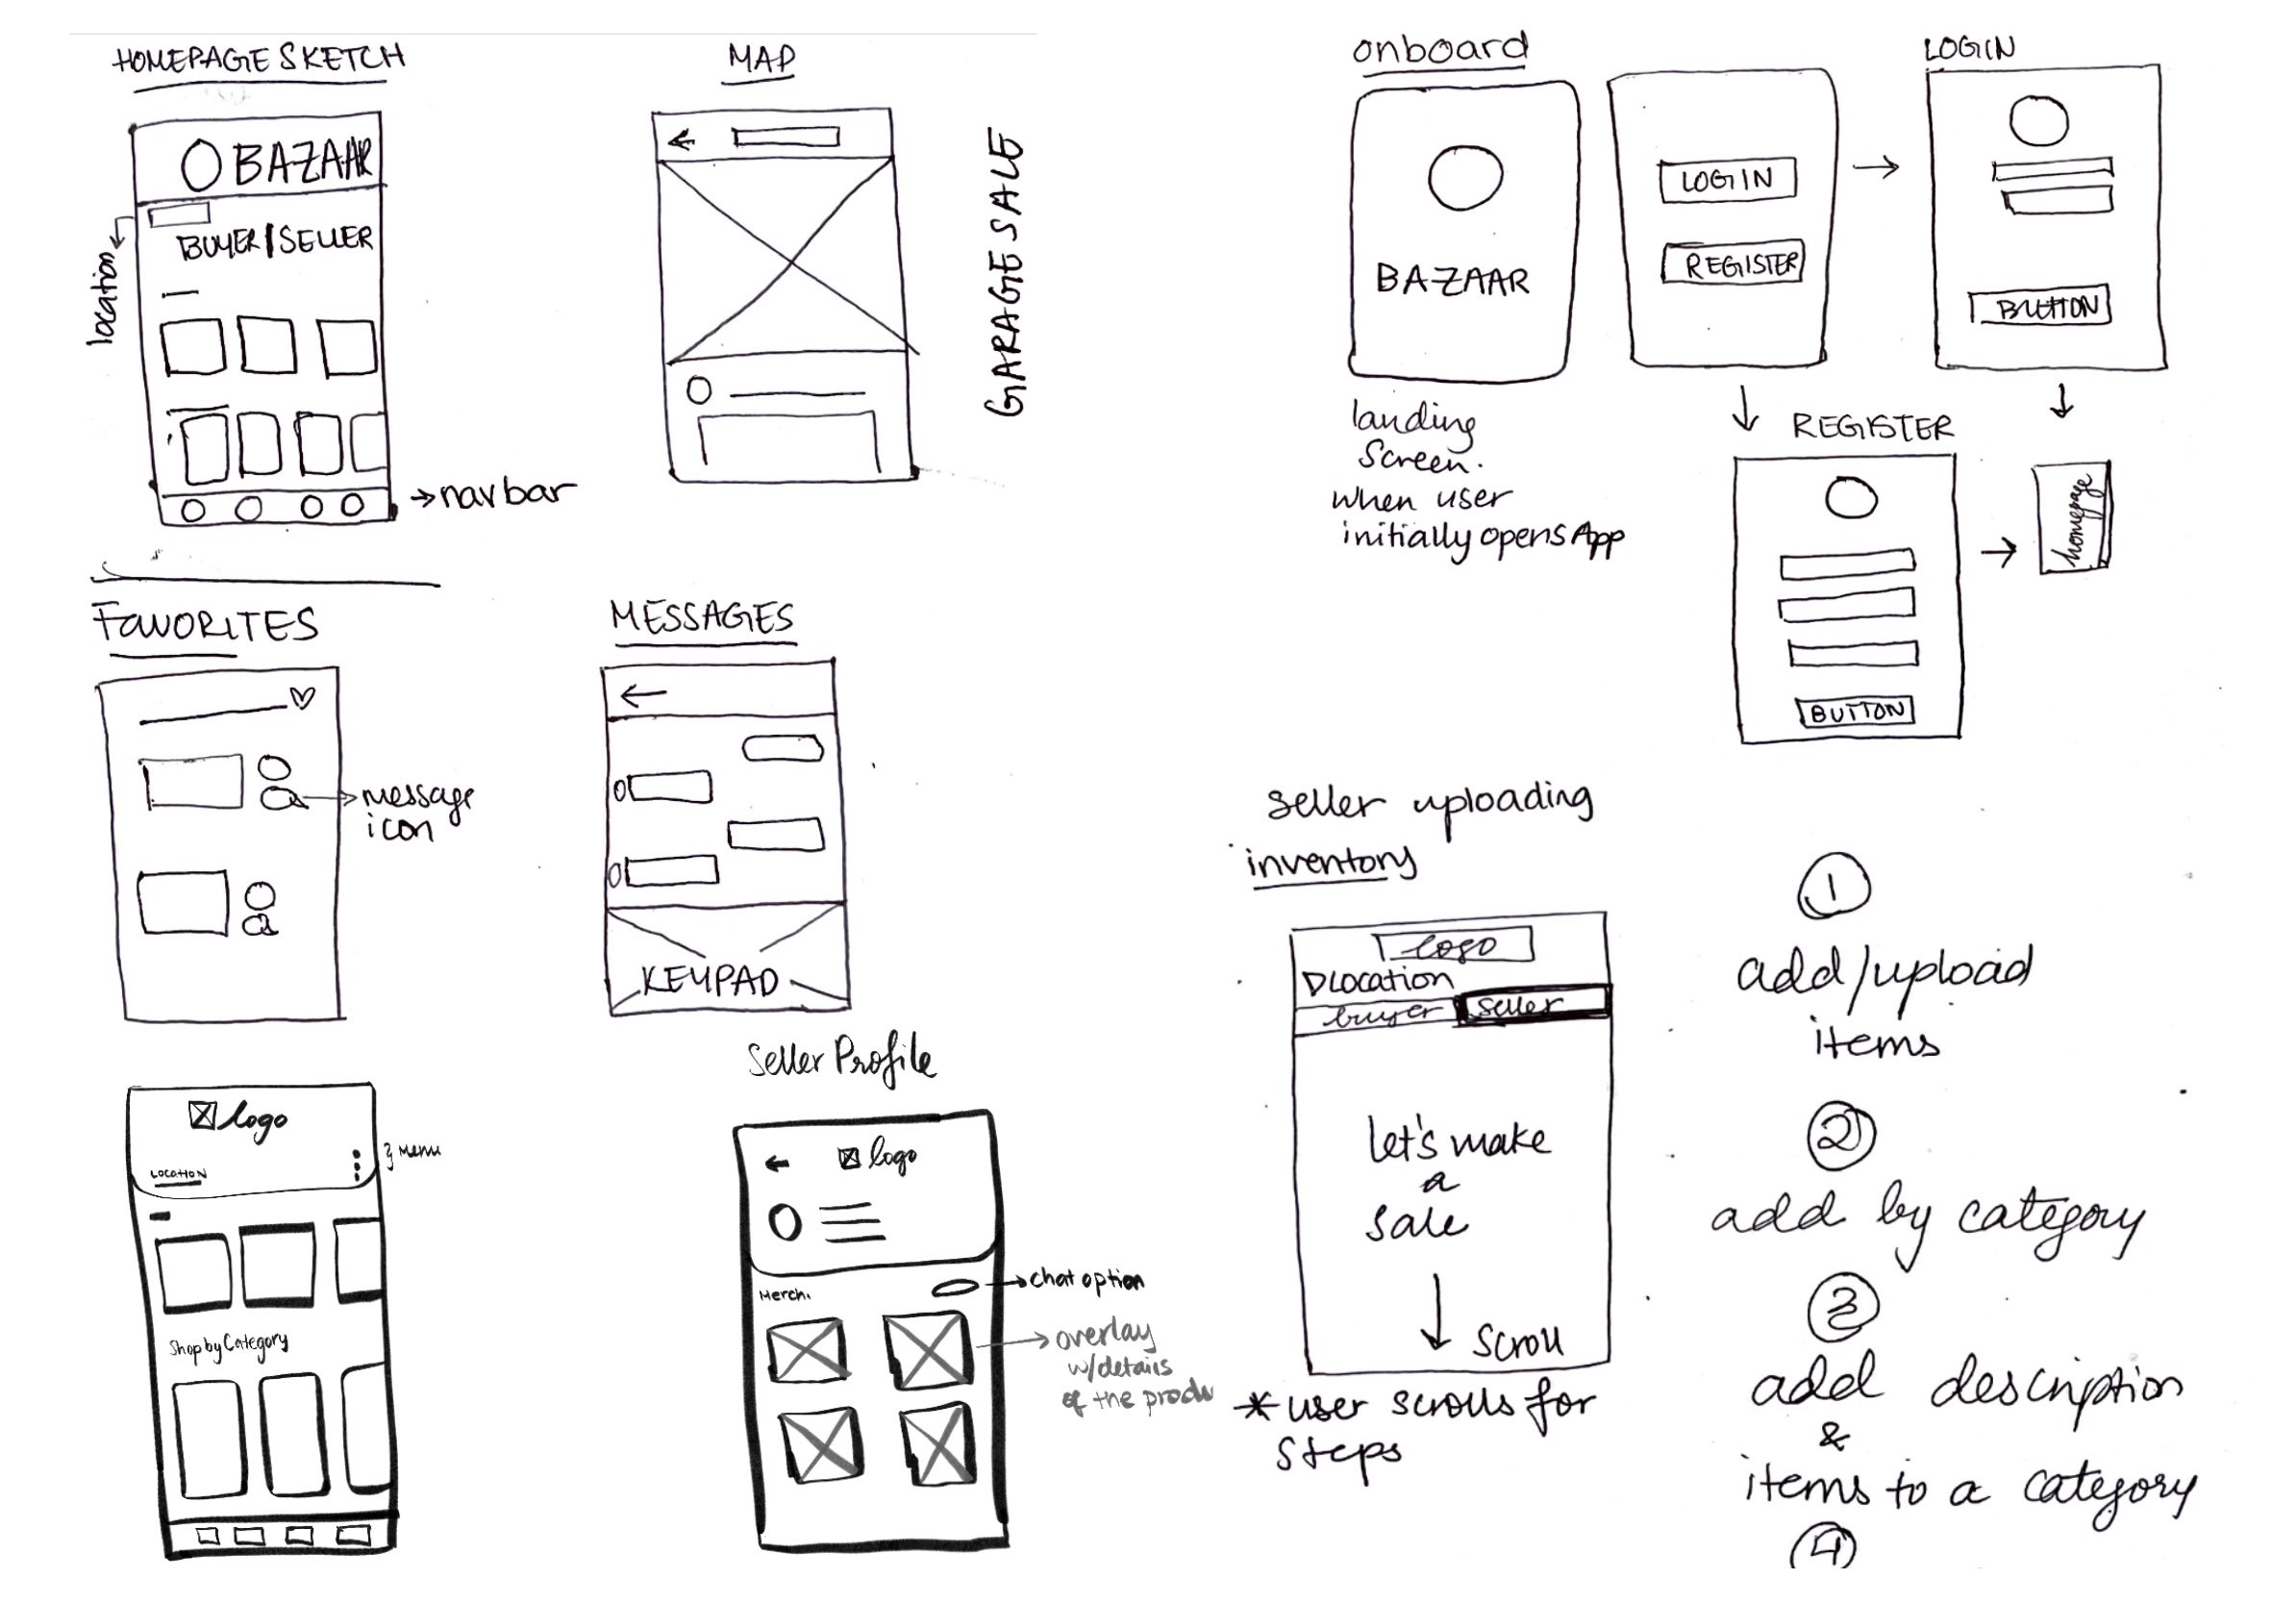 HOMEPAGE SKETCH
BAZAAR
location
BUYER/SELLER
→ navbar
MAP
GARAGE SALE
FAVORITES
message
icon
MESSAGES
KEYPAD
logo
LOCATION
Menu
Shop by Category
Seller Profile
logo
Merch.
chat option
overlay
w/details
of the produ
onboard
BAZAAR
landing
Screen.
when user
initially opens App
LOGIN
REGISTER
LOGIN
BUTTON
REGISTER
BUTTON
homepage
seller uploading
inventory
logo
LOCATION
buyer
seller
let's make
a
sale
Scroll
* user scrolls for
steps
1
add/upload
items
2
add by category
3
add description
&
items to a category
4